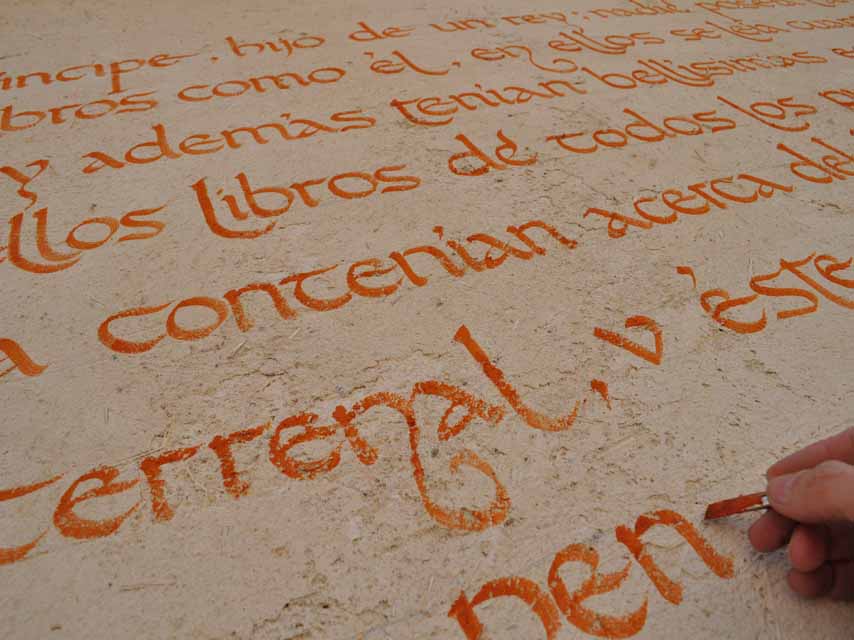 incipe, hijo de un rey; nadie poseía
libros como él, en ellos se leía cuan
y además tenían bellísimas e
ellos libros de todos los p
a contenían acerca del
terrenal, y éste
pen